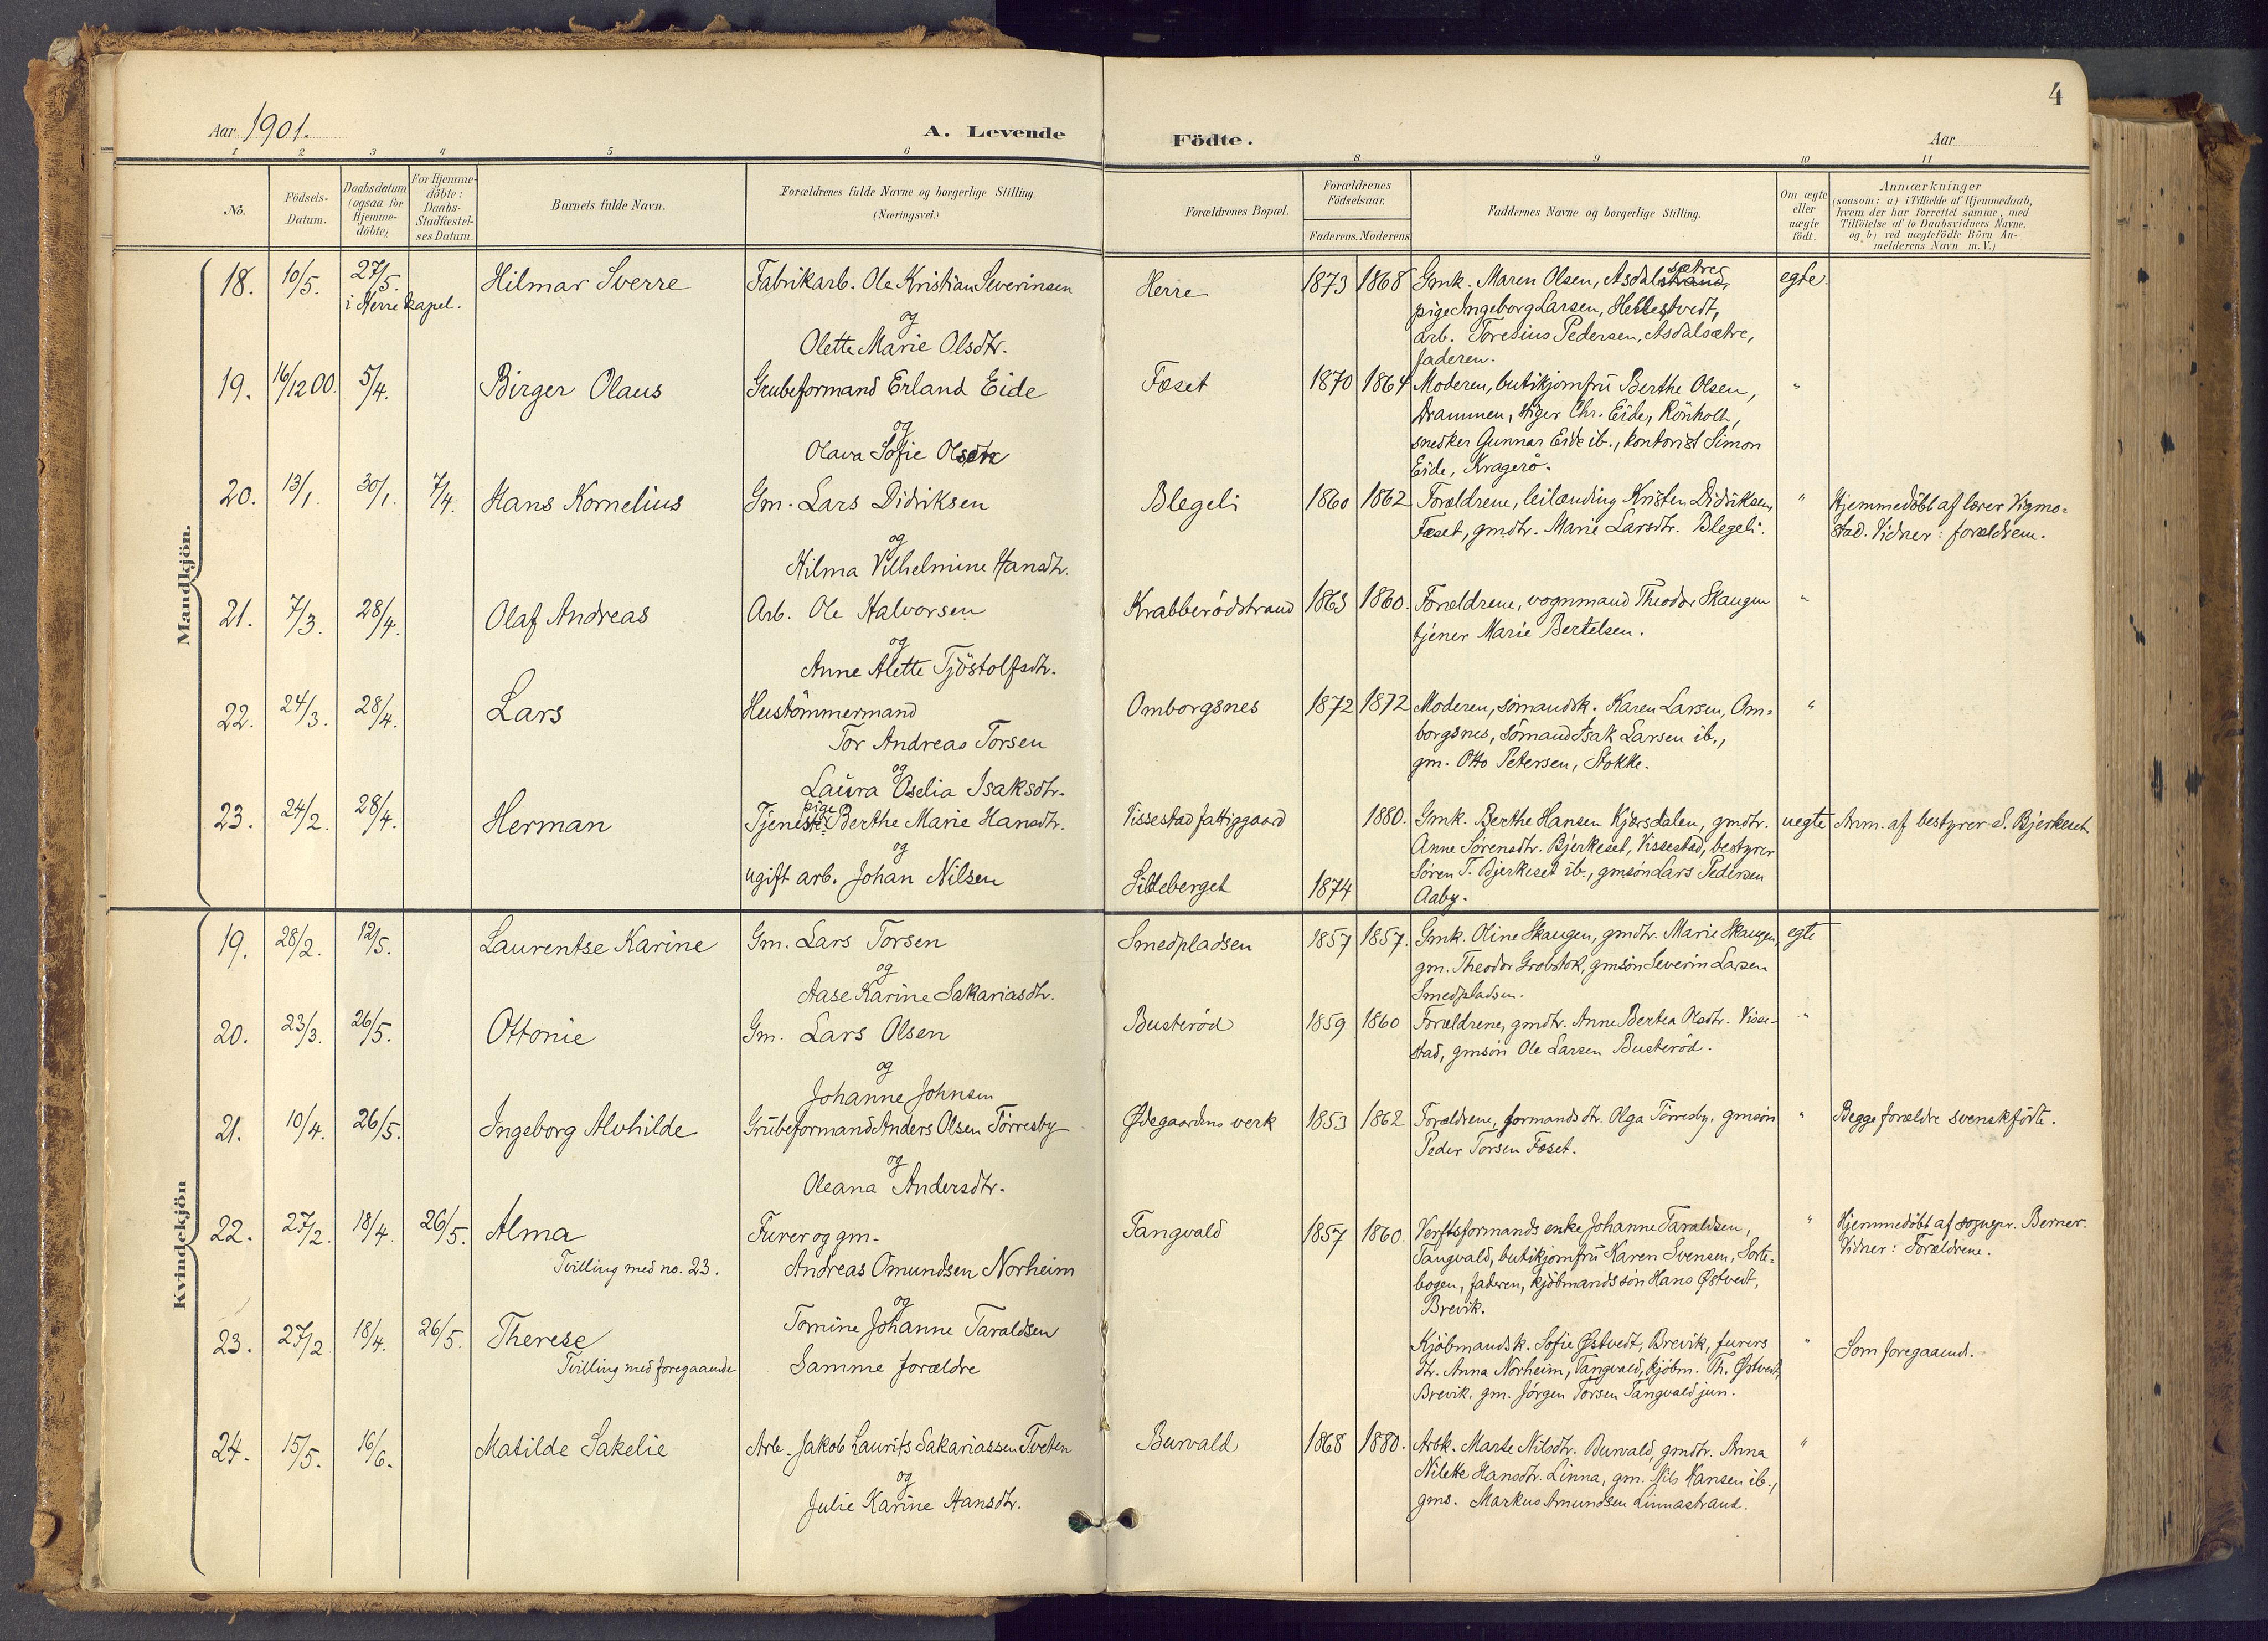 4
Aar 1901.
A. Levende Födte.
Aar
1 2 3 4 5 6 8 9 10 11
No.
Födsels-Datum.
Daabsdatum (ogsaa for Hjemme-döbte)
For Hjemme-döbte: Daabs-Stadfæstel-ses Datum.
Barnets fulde Navn.
Forældrenes fulde Navne og borgerlige Stilling. (Næringsvei.)
Forældrenes Bopæl.
Forældrenes Födselsaar.
Faderens. Moderens.
Faddernes Navne og borgerlige Stilling.
Om ægte eller uægte födt.
Anmærkninger
(saasom: a) i Tilfælde af Hjemmedaab, hvem der har forrettet samme, med Tilföielse af to Daabsvidners Navne. og b) ved uægtefödte Börn An-melderens Navn m. V.)
Mandkjön.
18. 10/5. 27/5. i Herre kapel. Hilmar Sverre
Fabrikarb. Ole Kristian Severinsen
og
Olette Marie Olsdtr.
Herre 1873 1868
Gmk. Maren Olsen, Asdalstrand, sætre
pige Ingeborg Larsen, Hellestvedt,
arb. Toresius Pedersen, Asdalsætre,
faderen.
egte.
19. 16/12 00. 5/4. Birger Olaus
Grubeformand Erland Eide
og
Olava Sofie Olsdtr
Foset 1870 1864
Moderen, butikjomfru Berthe Olsen,
Drammen, stiger Chr. Eide, Rönholt,
snedker Gunnar Eide ib., kontorist Simon
Eide, Kragerö.
"
20. 13/1. 30/1. 7/4. Hans Kornelius
Gm. Lars Didriksen
og
Hilma Vilhelmine Hansdtr.
Blegeli 1860 1862
Forældrene, leilænding Kristen Didriksen,
Fæset, gmdtr. Marie Larsdtr. Blegeli.
"
Hjemmedöbt af lærer Vigmo=
stad. Vidner: forældrene.
21. 7/3. 28/4. Olaf Andreas
Arb. Ole Halvorsen
og
Anne Alette Tjöstolfsdtr.
Krabberödstrand 1863 1860.
Forældrene, vognmand Theodor Skaugen
tjener Marie Bertelsen.
"
22. 24/3. 28/4. Lars
Hustömmermand
Tor Andreas Torsen
og
Laura Oselia Isaksdtr.
Omborgsnes 1872 1872
Moderen, sömandsk. Karen Larsen, Om=
borgsnes, sömand Isak Larsen ib.,
gm. Otto Petersen, Stokke.
"
23. 24/2. 28/4. Herman
Tjeneste pige Berthe Marie Hansdtr.
og
ugift arb. Johan Nilsen
Vissestad fattiggaard 1880.
Sildeberget 1874
Gmk. Berthe Hansen Kjørsdalen, gmdtr.
Anne Sørensdtr. Bjerkeset, Vissestad, bestyrer
Søren T. Bjerkeset ib., gmsön Lars Pedersen
Aaby.
uegte
Anm. af bestyrer S. Bjerkeset
Kvindekjön
19. 28/2. 12/5. Laurentse Karine
Gm. Lars Torsen
og
Aase Karine Sakariasdtr.
Smedpladsen 1857 1857.
Gmk. Oline Skaugen, gmdtr. Marie Skaugen,
gm. Theodor Grobstok, gmsön Severin Larsen
Smedpladsen.
egte
20. 23/3. 26/5. Ottonie
Gm. Lars Olsen
og
Johanne Johnsen
Busteröd 1859 1860
Forældrene, gmdtr. Anne Bertea Olsdtr. Visse-
stad, gmsön Ole Larsen Busteröd.
"
21. 10/4. 26/5. Ingeborg Alvhilde
Grubeformand Anders Olsen Törresby
og
Oleana Andersdtr.
Ødegaardens verk 1853 1862
Forældrene, formandsdtr. Olga Törresby, gmsön
Peder Torsen Fæset.
"
Begge forældre svenskfödte.
22. 27/2. 18/4. 26/5. Alma
Tvilling med no. 23.
Furer og gm.
Andreas Omundsen Norheim
og
Tomine Johanne Taraldsen
Tangvald 1857 1860.
Verftsformands enke Johanne Taraldsen,
Tangvald, butikjomfru Karen Svensen, Sorte=
bogen, faderen, kjöbmandssön Hans Østvedt,
Brevik.
"
Hjemmedöbt af sognepr. Berner.
Vidner: Forældrene.
23. 27/2. 18/4. 26/5. Therese
Tvilling med foregaaende
Samme forældre
Kjöbmandsk. Sofie Østvedt, Brevik, furers
dtr. Anna Norheim, Tangvald, kjöbm. Th. Østvedt,
Brevik, gm. Jörgen Torsen Tangvald jun.
"
Som foregaaende.
24. 15/5. 16/6. Matilde Sakelie
Arb. Jakob Laurits Sakariassen Tveten
og
Julie Karine Hansdtr.
Burvald 1868 1880.
Arbk. Marte Nilsdtr. Burvald, gmdtr. Anna
Nilette Hansdtr. Linna, gm. Nils Hansen ib.,
gms. Markus Amundsen Linnastrand.
"